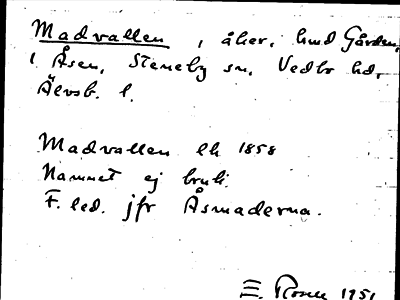 Madvallen, åker, hmd Gården,
i Åsen, Steneby sn, Vedbo hd,
Älvsb. l.
Madvallen lk 1858
Namnet ej bruk.
F. led. jfr Åsmaderna.
E. Rosell 1951